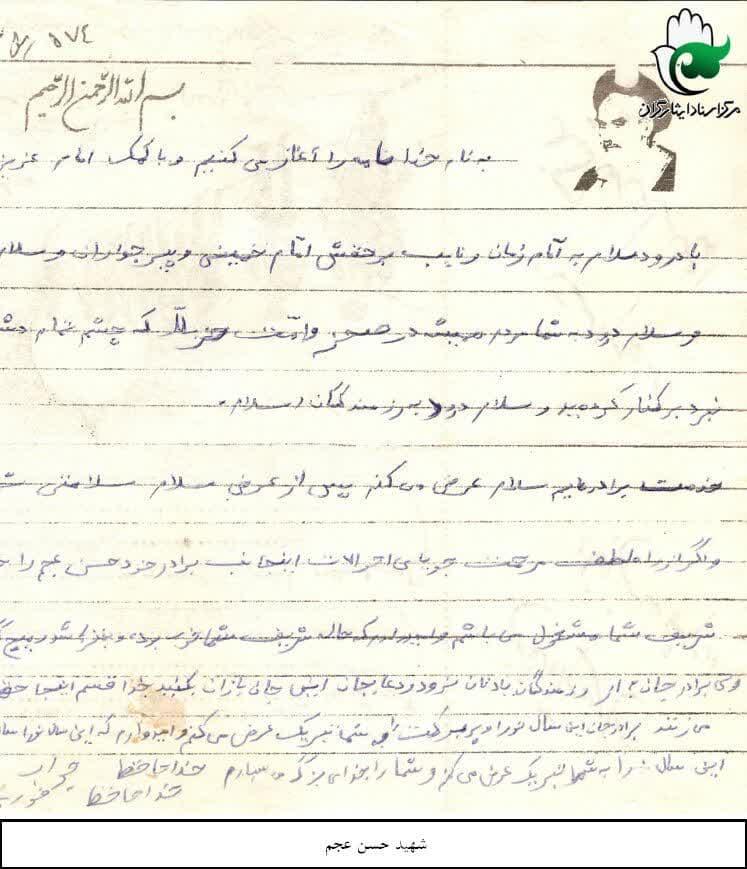 ۵۷۴
مرکز اسناد ایثارگران
بسم الله الرحمن الرحیم
به نام خدا نامه را آغاز می کنیم و با کمک امام عزیز
با درود و سلام به امام زمان و نایب بر حقش امام خمینی و سلام
و سلام درود به شما مردم در صحنه و امت حزب الله که چشم تمام
کرده بید و سلام درود به رزمندگان اسلام.
خدمت برادرهایم سلام عرض می کنم پس از عرض سلام سلامتی
و اگر از راه لطف مرحمت جویای احوالات اینجانب برادر خود حسن عجم را
شریف شما مشغول می باشم و امیدوارم که حال شریف شما خوب بوده و
رزمندگان یادتان نرود و دعا بجان این جان بازان بکنید خدا قسم اینجا
می زنند برادر جان این سال نو را و پر برکت به شما تبریک عرض می کنم و امیدوارم که این سال نو
این سال را به شما تبریک عرض می کنم و شما را بخدای بزرگ می سپارم خداحافظ
خداحافظ
شهید حسن عجم